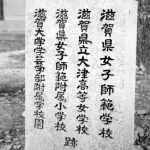 滋賀県女子師範学校
滋賀県立大津高等女学校
滋賀県女子師範附属小学校
滋賀大学学芸学部附属学校園
跡